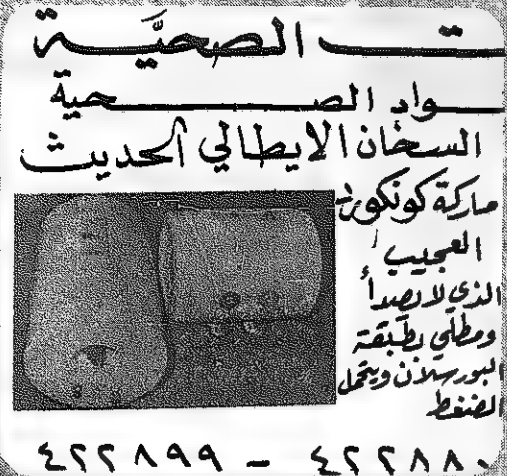 ـت الصحيَّـة
ـواد الصـحية
السخان الايطالي الحديث
ماركة كونكورد
العجيب
الذي لا يصدأ
ومطلي بطبقة
البورسلان ويتحمل
الضغط
٤٢٢٨٨٠ - ٤٢٢٨٩٩